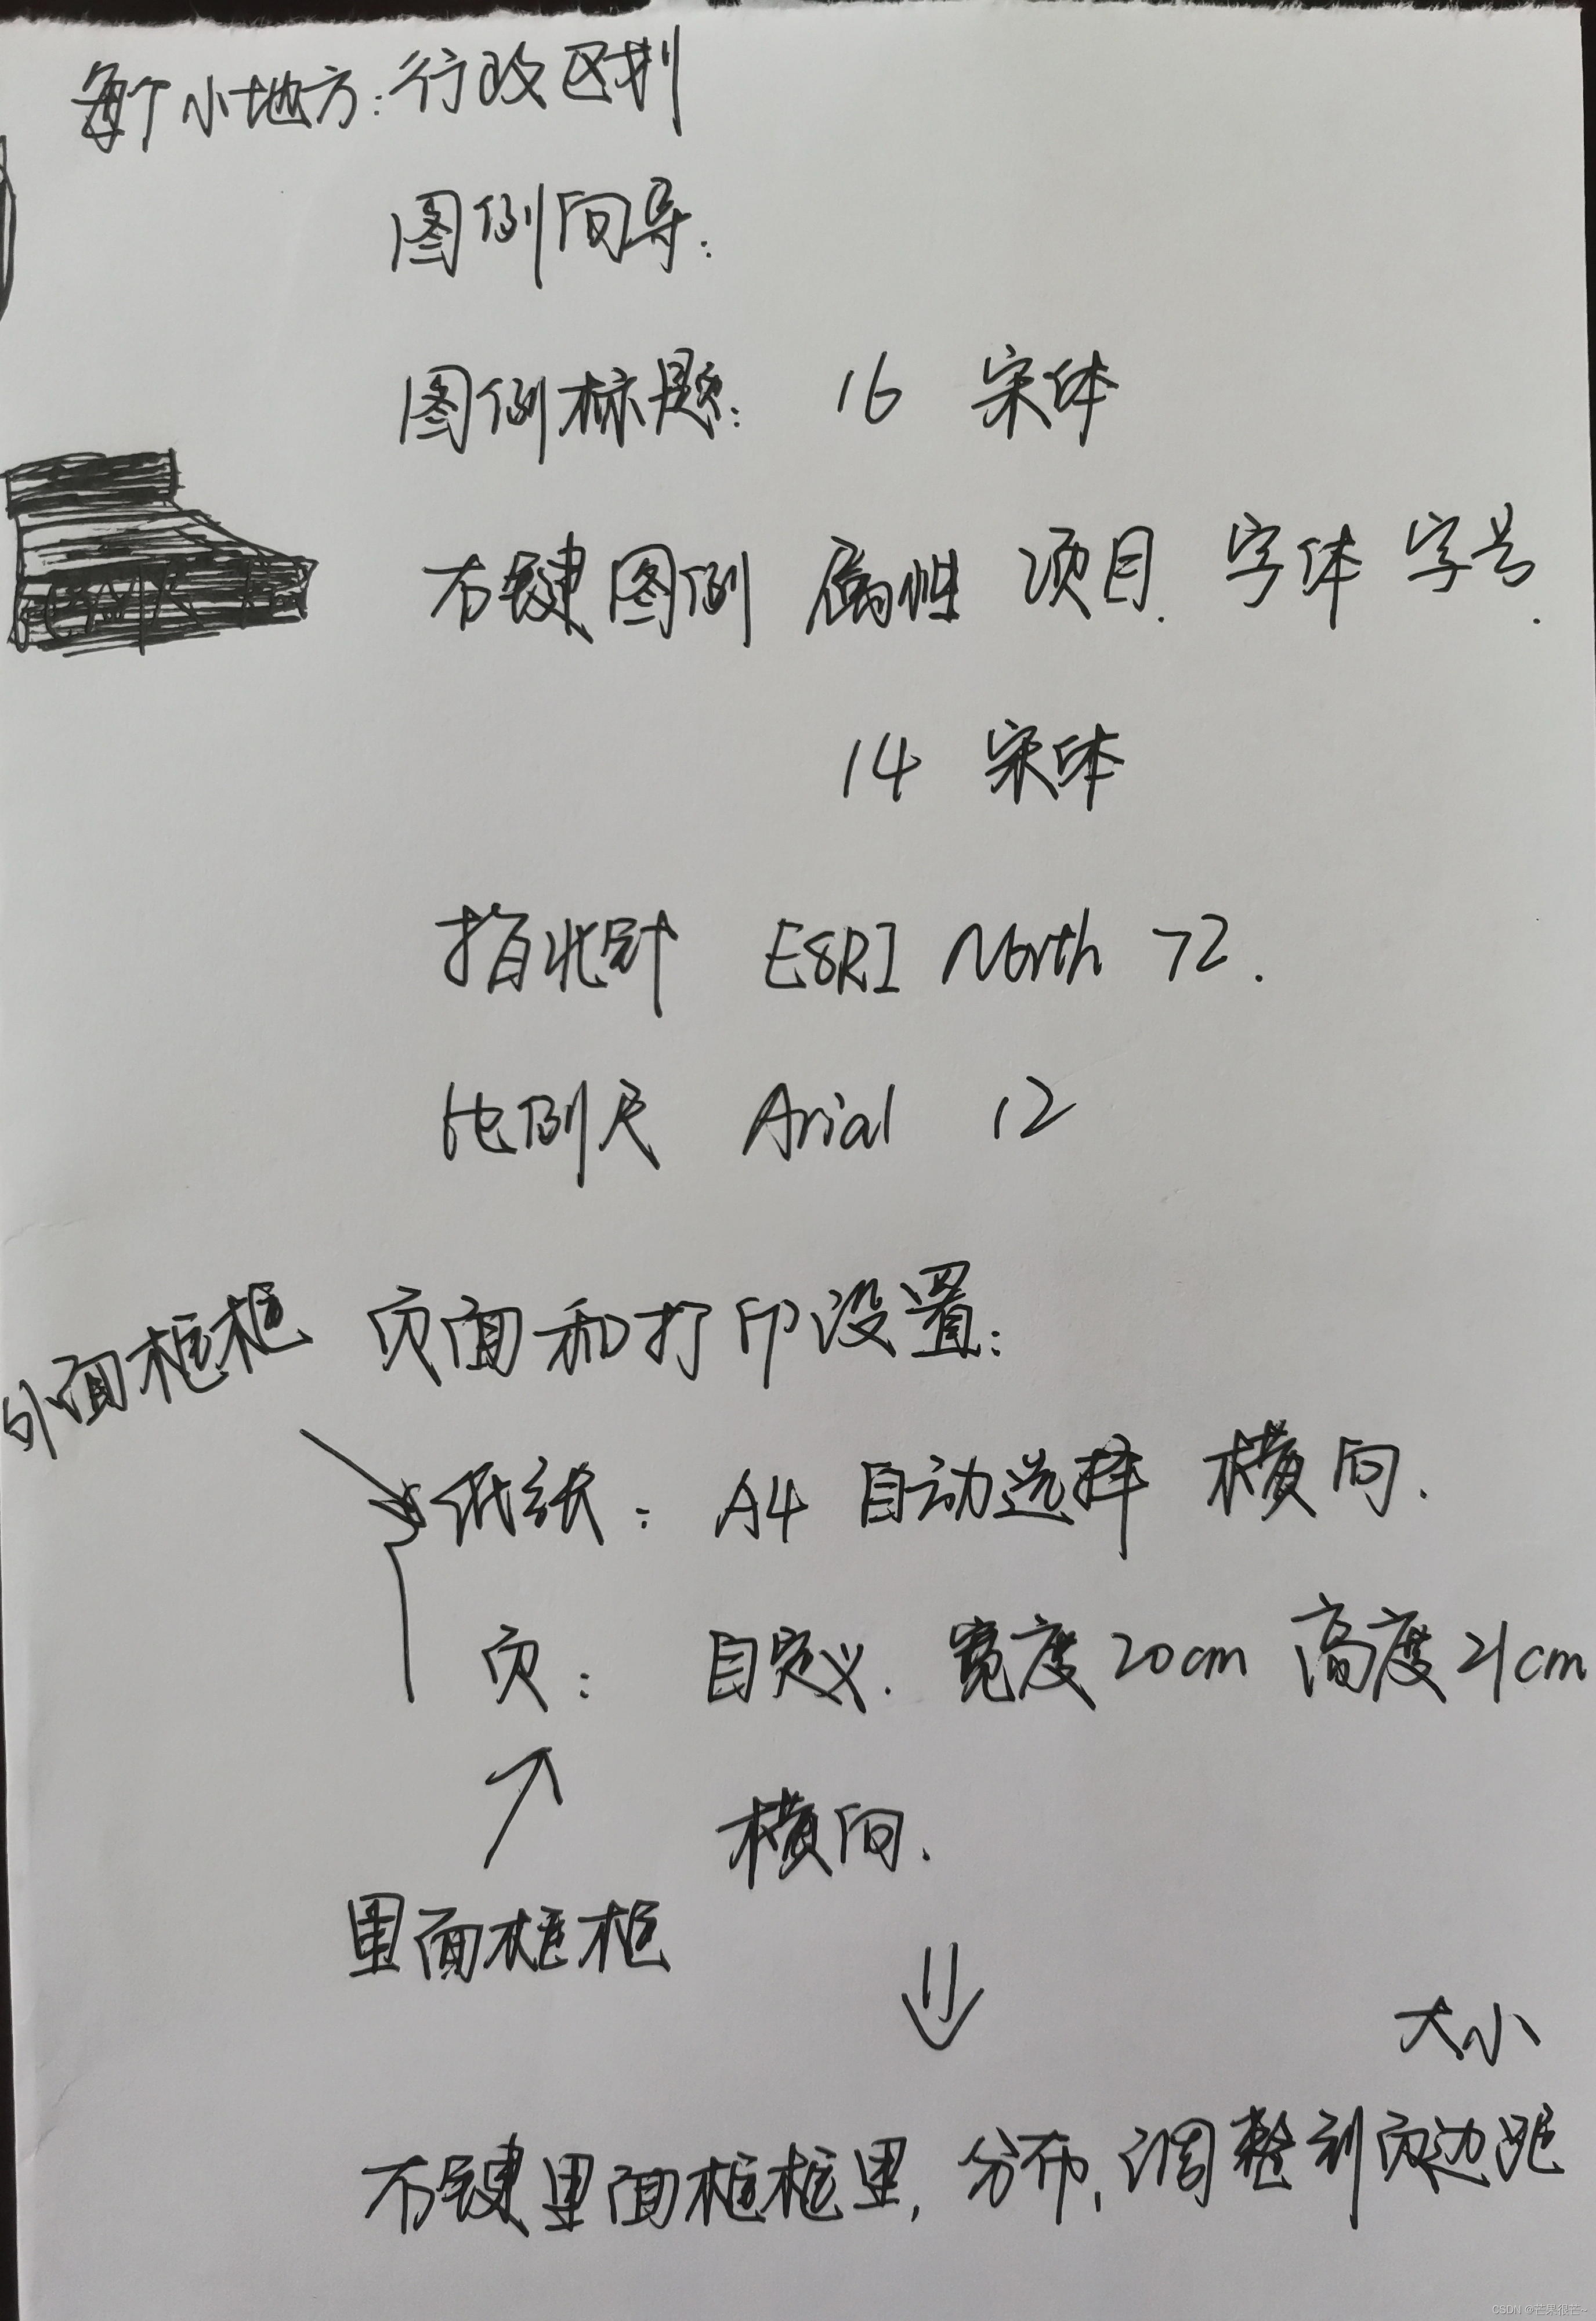 每个小地方:行政区划
图例向导:
图例标题: 16 宋体
右键图例 属性 项目. 字体 字号.
14 宋体
指北针 ESRI North 72.
比例尺 Arial 12
外面框框 页面和打印设置:
纸张: A4 自动选择 横向.
页: 自定义. 宽度20cm 高度21cm
横向.
里面框框
大小
右键里面框框里, 分布, 调整到页边距
CSDN @芒果很芒~